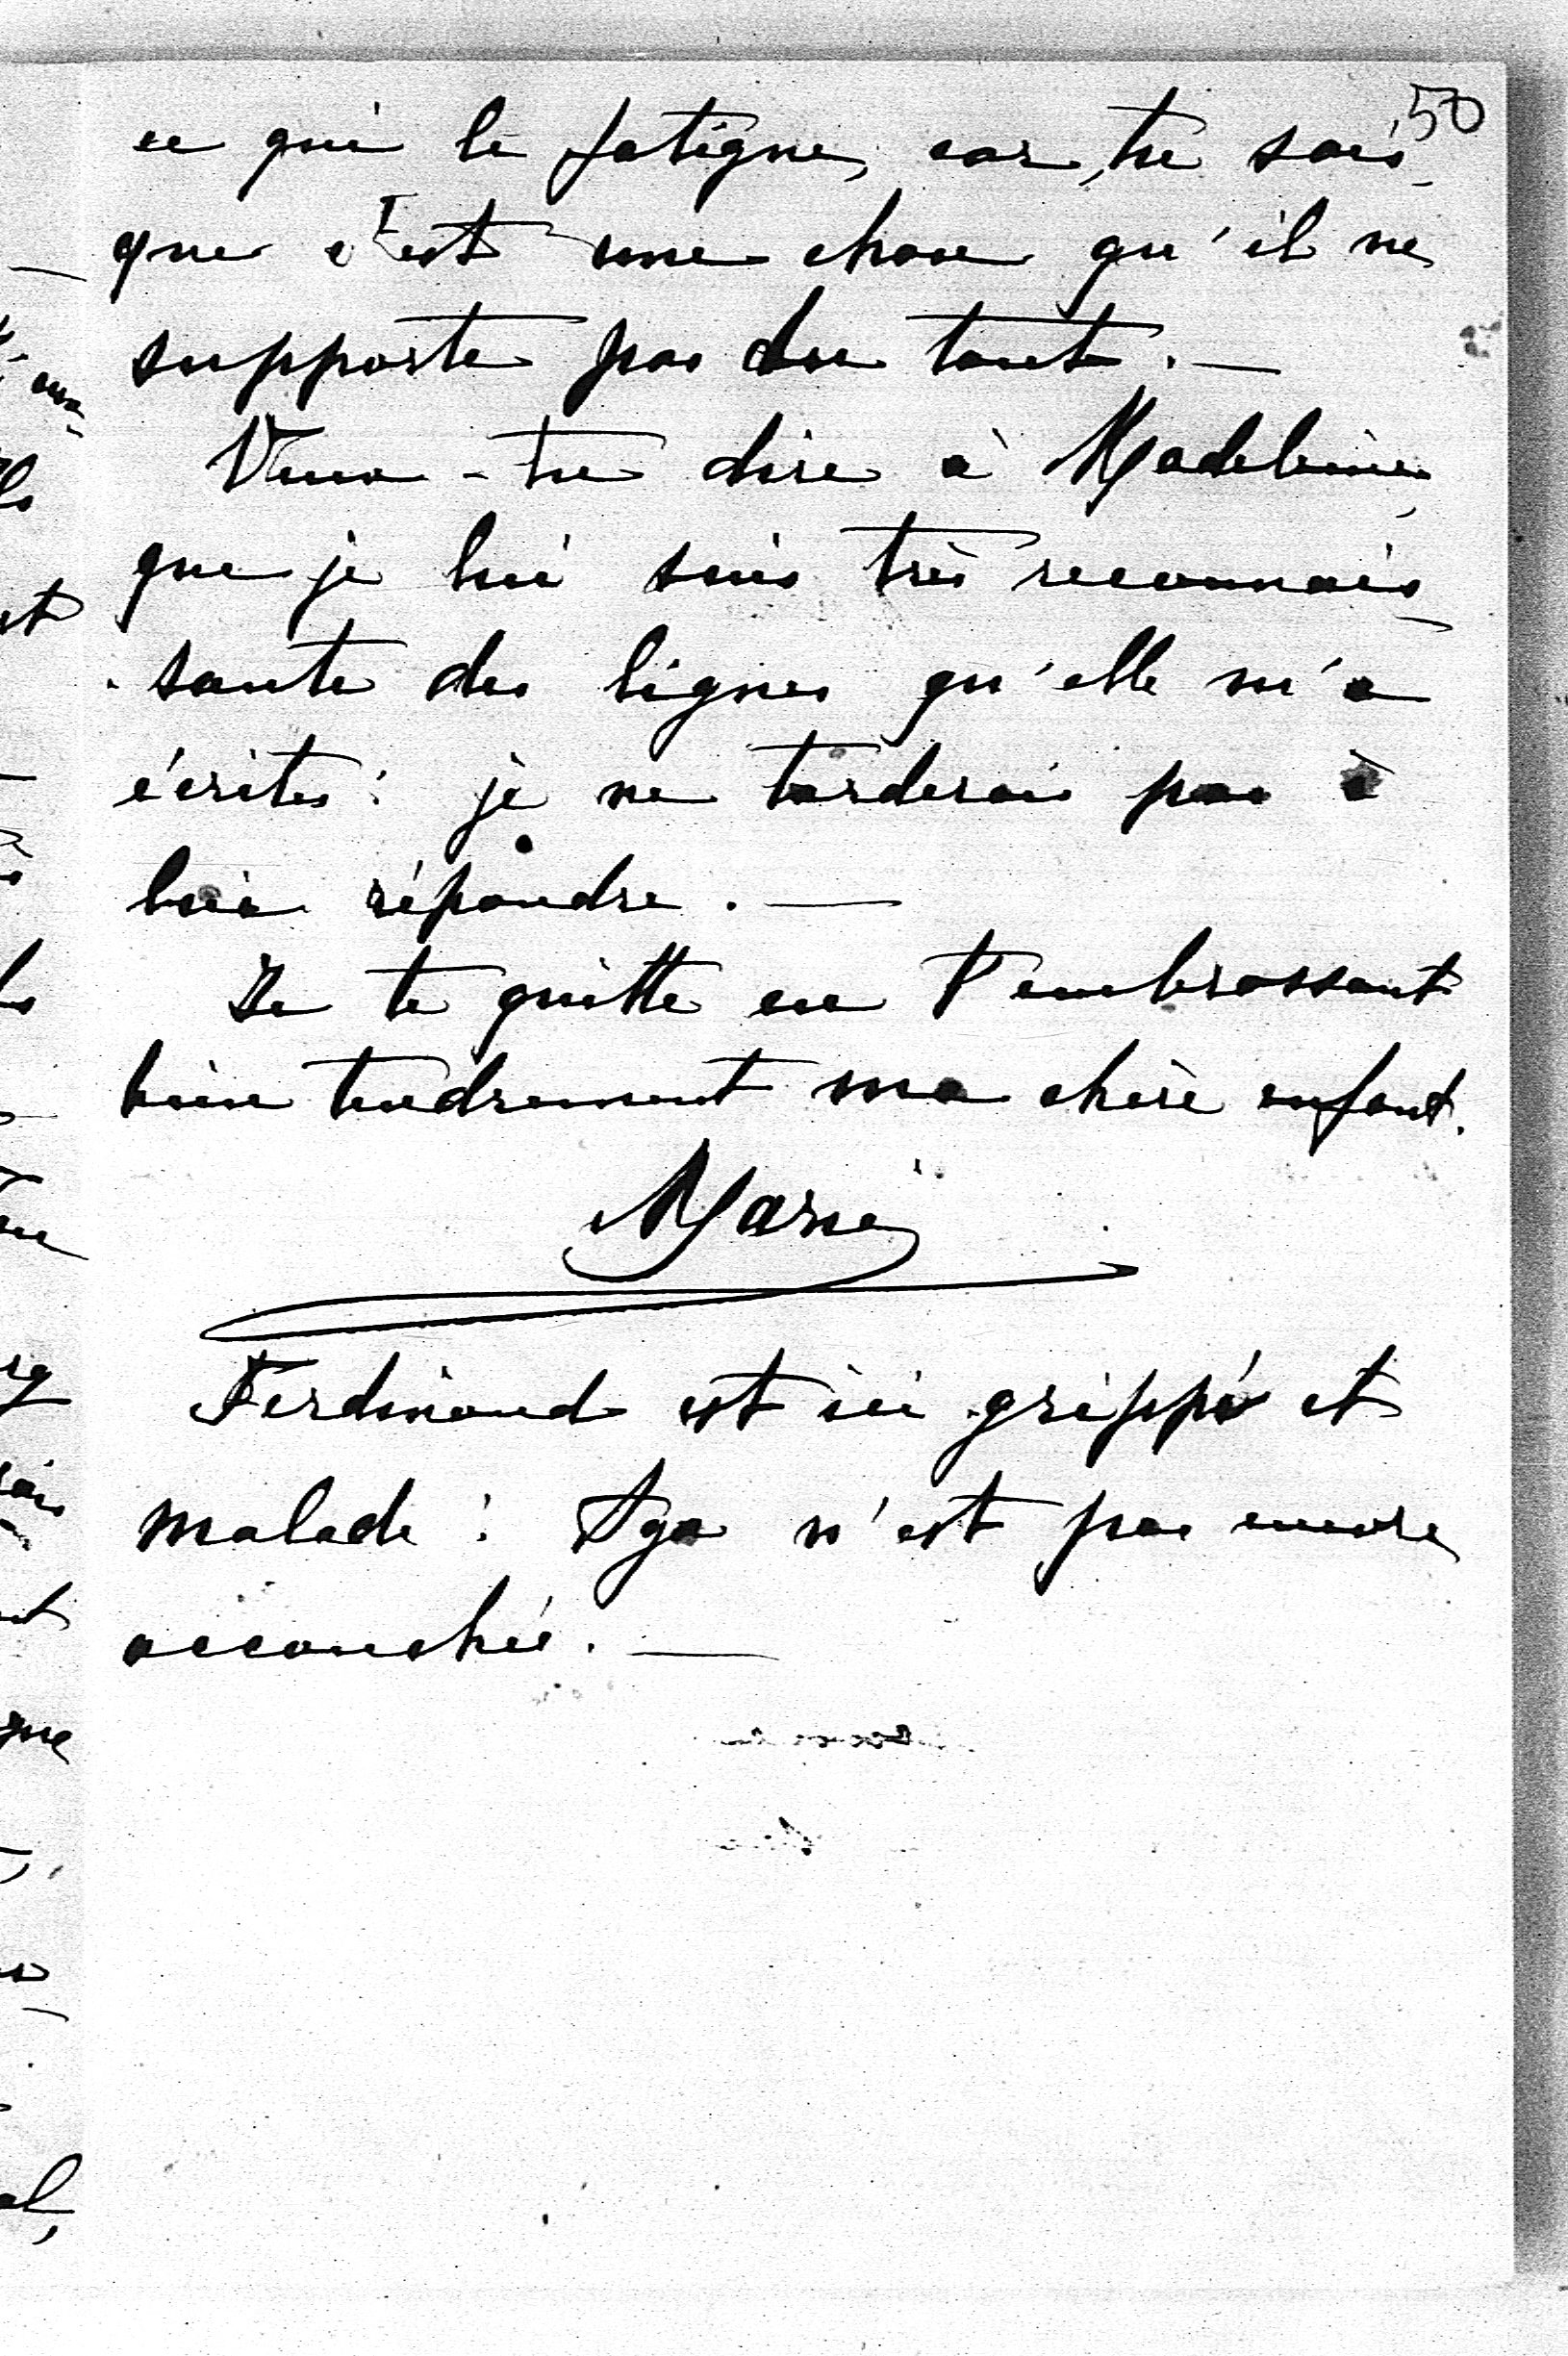 50
ce qui le fatigue, car, tu sais
que c'est une chose qu'il ne
supporte pas du tout. —
Veux-tu dire à Madeleine
que je lui suis très reconnais-
-sante des lignes qu'elle m'a
écrites : je ne tarderai pas à
lui répondre. —
Je te quitte en t'embrassant
bien tendrement ma chère enfant.
Marie
Ferdinand est ici grippé et
malade : n'est pas encore
accouchée. —